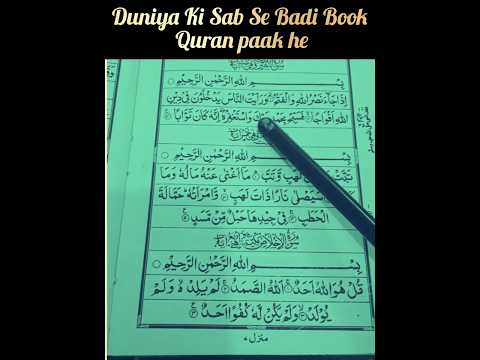 Duniya Ki Sab Se Badi Book
Quran paak he
بِسْمِ اللهِ الرَّحْمٰنِ الرَّحِيْمِ
اِذَا جَآءَ نَصْرُ اللهِ وَالْفَتْحُ وَرَاَيْتَ النَّاسَ يَدْخُلُوْنَ فِيْ دِيْنِ
اللهِ اَفْوَاجًا فَسَبِّحْ بِحَمْدِ رَبِّكَ وَاسْتَغْفِرْهُ اِنَّهٗ كَانَ تَوَّابًا
بِسْمِ اللهِ الرَّحْمٰنِ الرَّحِيْمِ
تَبَّتْ يَدَآ اَبِيْ لَهَبٍ وَّتَبَّ مَآ اَغْنٰى عَنْهُ مَالُهٗ وَمَا
كَسَبَ سَيَصْلٰى نَارًا ذَاتَ لَهَبٍ وَّامْرَاَتُهٗ حَمَّالَةَ
الْحَطَبِ فِيْ جِيْدِهَا حَبْلٌ مِّنْ مَّسَدٍ
سُوْرَةُ الْاِخْلَاصِ
بِسْمِ اللهِ الرَّحْمٰنِ الرَّحِيْمِ
قُلْ هُوَ اللهُ اَحَدٌ اَللهُ الصَّمَدُ لَمْ يَلِدْ وَلَمْ
يُوْلَدْ وَلَمْ يَكُنْ لَّهٗ كُفُوًا اَحَدٌ
منزل ٧